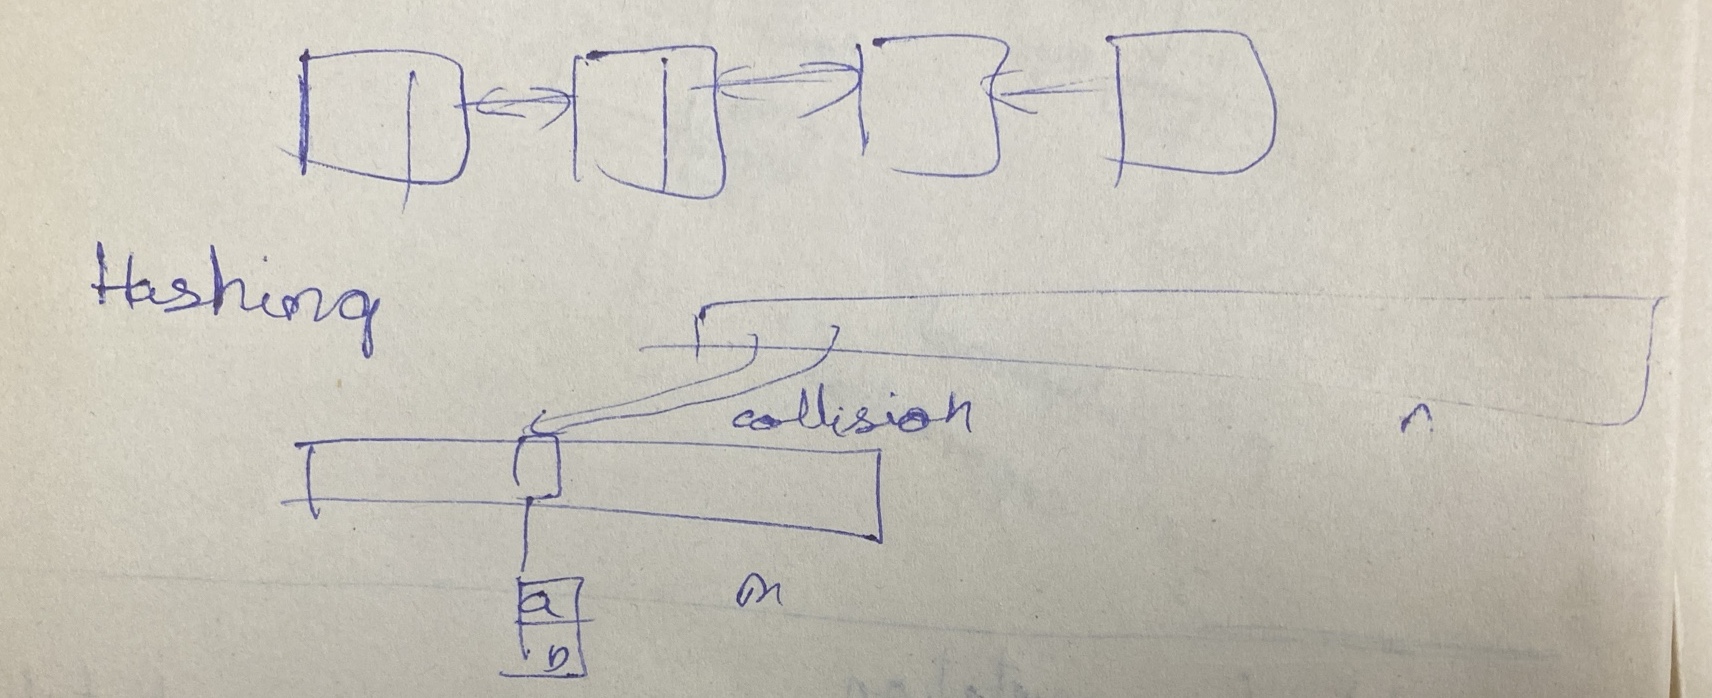 Hashing
collision
n
m
a
b